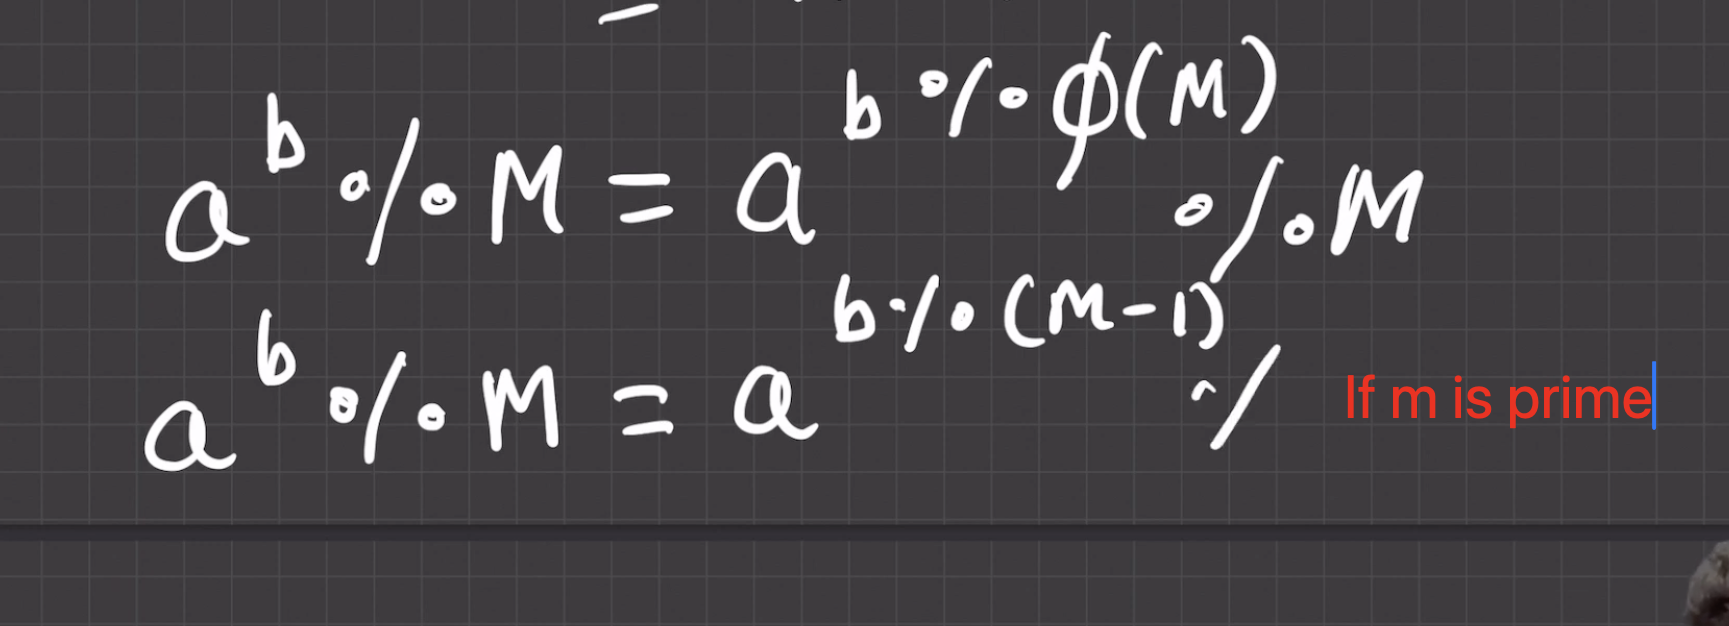 a^b % M = a^(b % φ(M)) % M
a^b % M = a^(b % (M-1)) % If m is prime